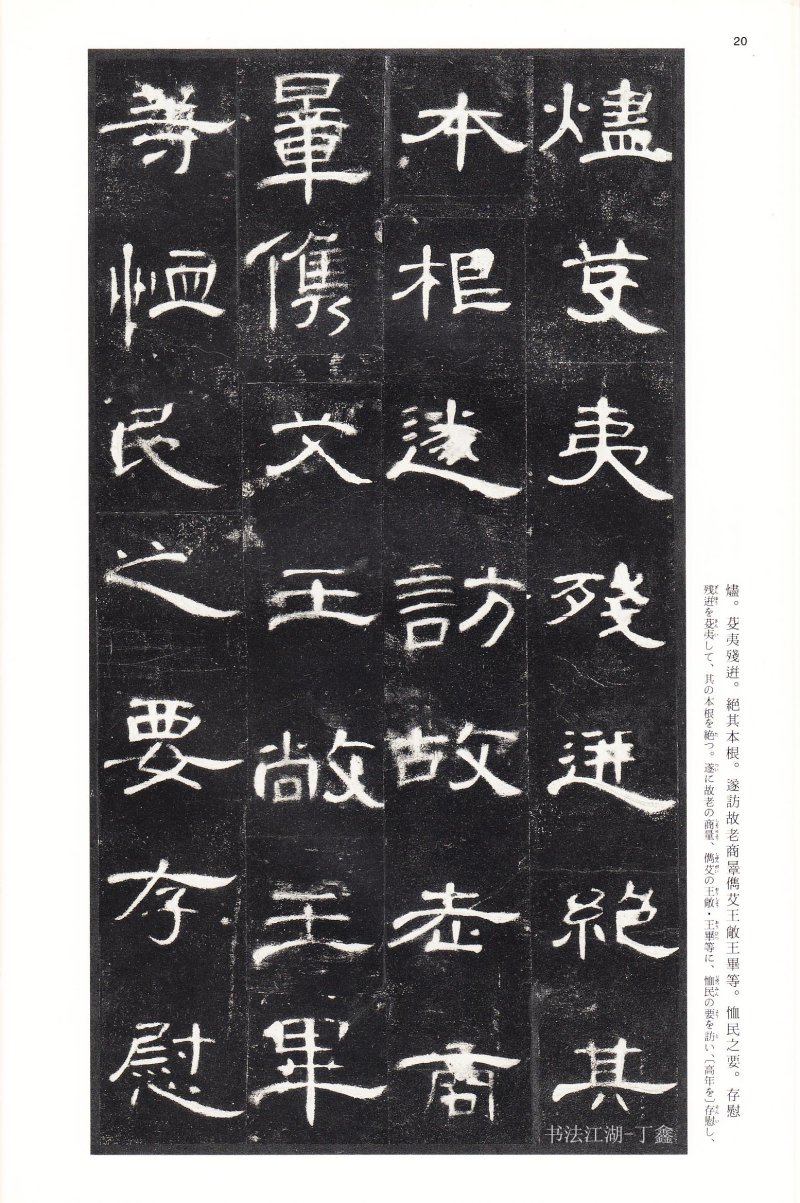 20
燼芟夷殘迸絕其
本根遂訪故老商
暈儁艾王敞王畢
等恤民之要存慰
燼。芟夷殘迸。絕其本根。遂訪故老商暈儁艾王敞王畢等。恤民之要。存慰
残迸を芟夷して、其の本根を絶つ。遂に故老の商暈、儁艾の王敞・王畢等に、恤民の要を訪い、〔高年を〕存慰し、
书法江湖-丁鑫